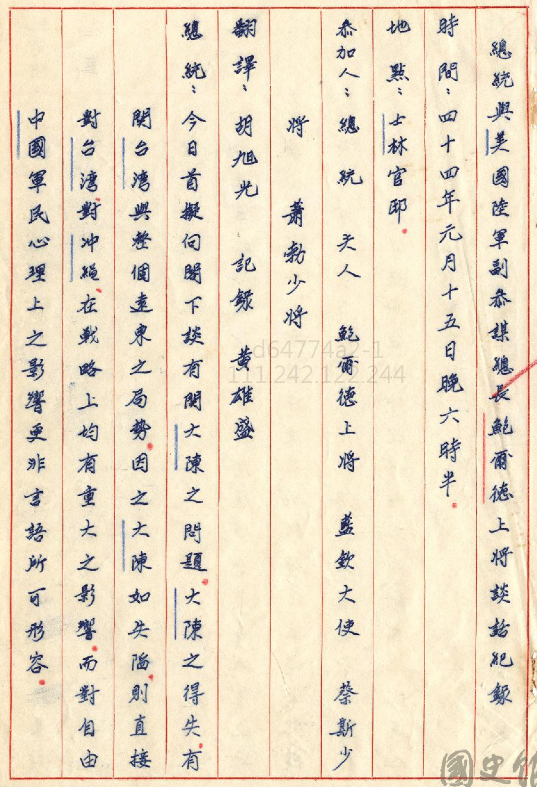 總統與美國陸軍副參謀總長鮑爾德上將談話紀錄
時間：四十四年元月十五日晚六時半。
地點：士林官邸。
參加人：總統 夫人 鮑爾德上將 藍欽大使 蔡斯少
將 蕭勃少將
翻譯：胡旭光 記錄 黃雄盛
總統：今日首擬向閣下談有関大陳之問題。大陳之得失。有
関台湾與整個遠東之局勢。因之大陳如失陷。則直接
對台湾。對冲繩。在戰略上均有重大之影響。而對自由
中國軍民心理上之影響更非言語所可形容。
d64774a2-1
111.242.122.244
國史館